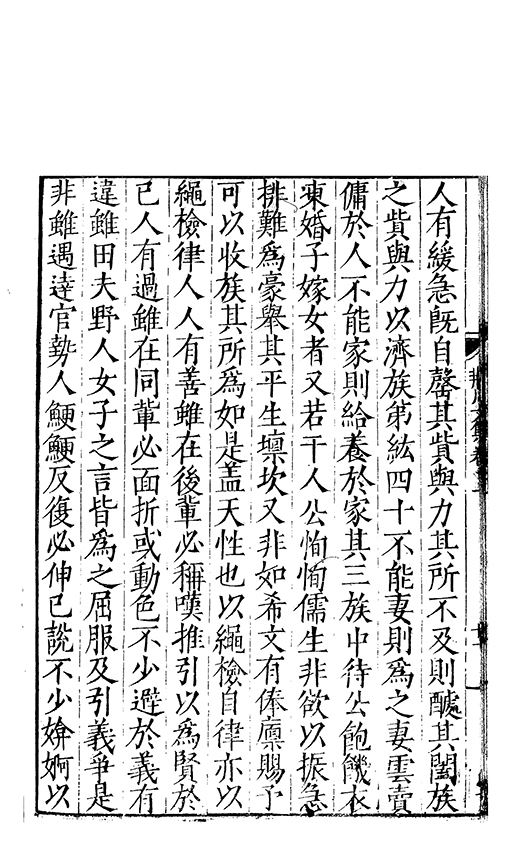 人有緩急旣自罄其貲與力其所不及則醵其閭族
之貲與力以濟族第紘四十不能妻則爲之妻雲賣
傭於人不能家則給養於家其三族中待公飽饑衣
凍婚子嫁女者又若干人公恂恂儒生非欲以振急
排難爲豪舉其平生壈坎又非如希文有俸廪賜予
可以收族其所爲如是盖天性也以繩檢自律亦以
繩檢律人人有善雖在後輩必稱嘆推引以爲賢於
己人有過雖在同輩必面折或動色不少避於義有
違雖田夫野人女子之言皆爲之屈服及引義爭是
非雖遇達官勢人鯁鯁反復必伸己說不少媕婀以